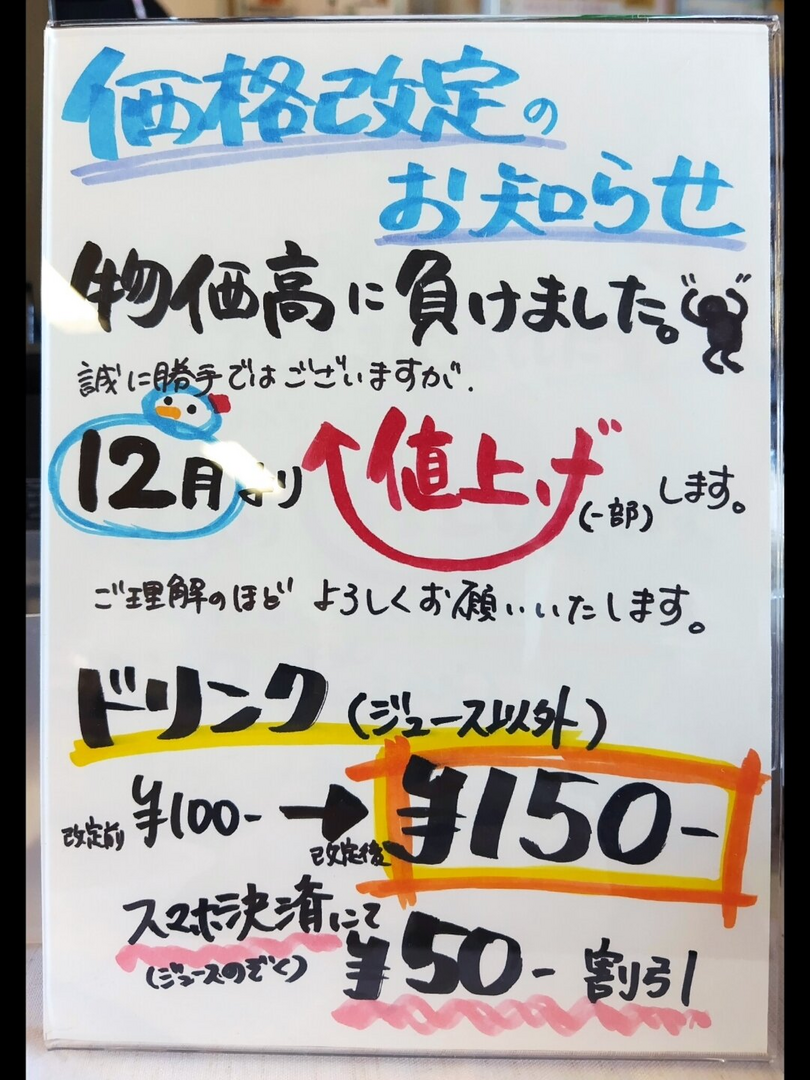 価格改定の
お知らせ
物価高に負けました。
誠に勝手ではございますが、
12月より値上げ(一部)します。
ご理解のほど よろしくお願いいたします。
ドリンク(ジュース以外)
改定前 ¥100- → 改定後 ¥150-
スマホ決済にて
(ジュースのぞく) ¥50- 割引